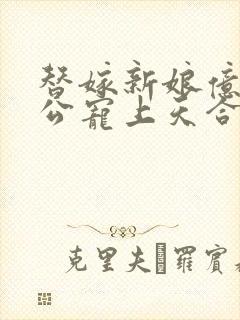 替嫁新娘億
公寵上天合
克里夫 羅賓